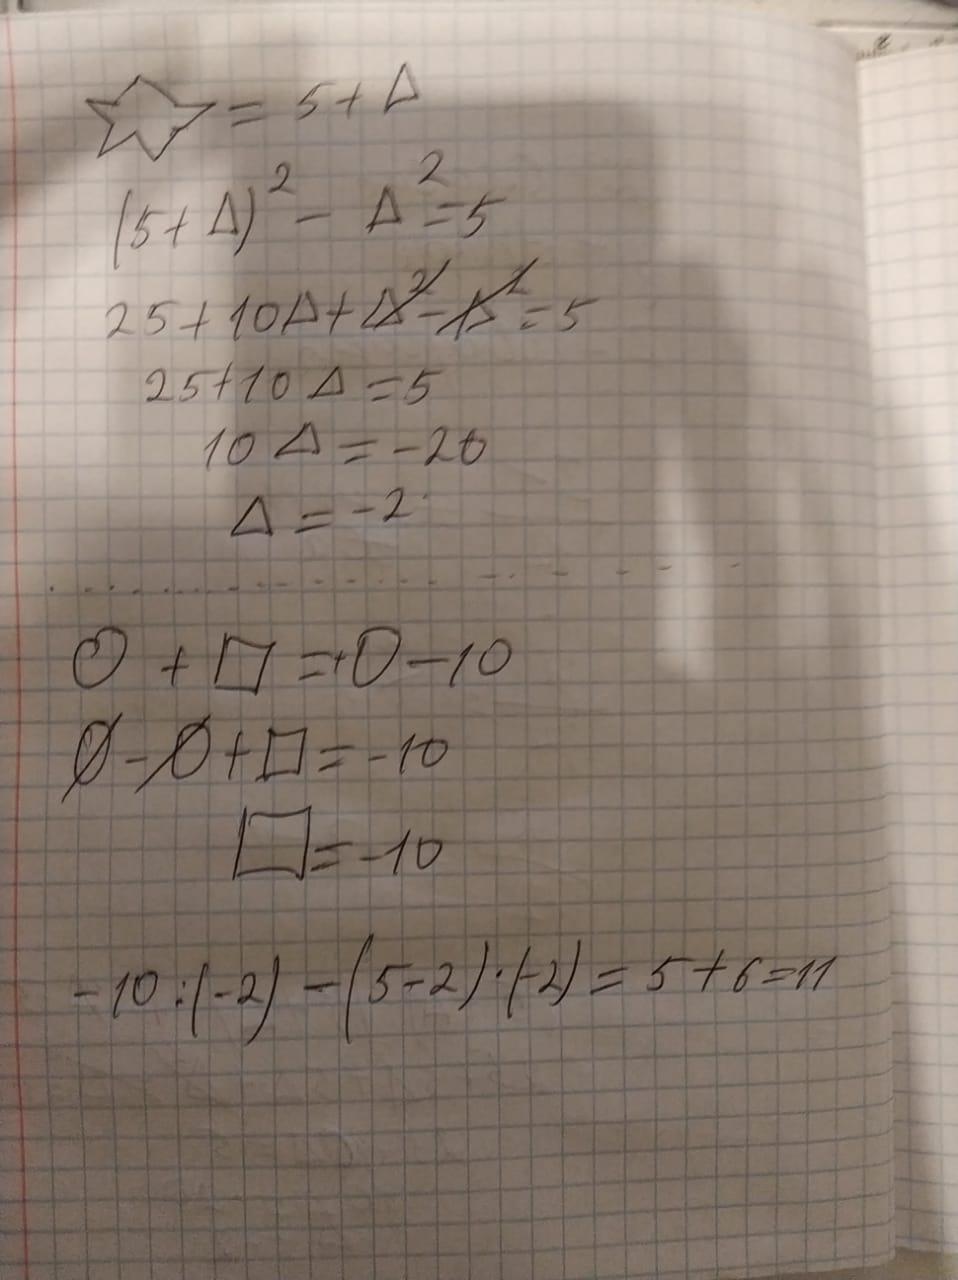 ☆ = 5 + Δ
(5 + Δ)² - Δ² = 5
25 + 10Δ + Δ² - Δ² = 5
25 + 10Δ = 5
10Δ = -20
Δ = -2
○ + □ = +○ - 10
○ - ○ + □ = -10
□ = -10
-10 : (-2) - (5-2) · (-2) = 5 + 6 = 11